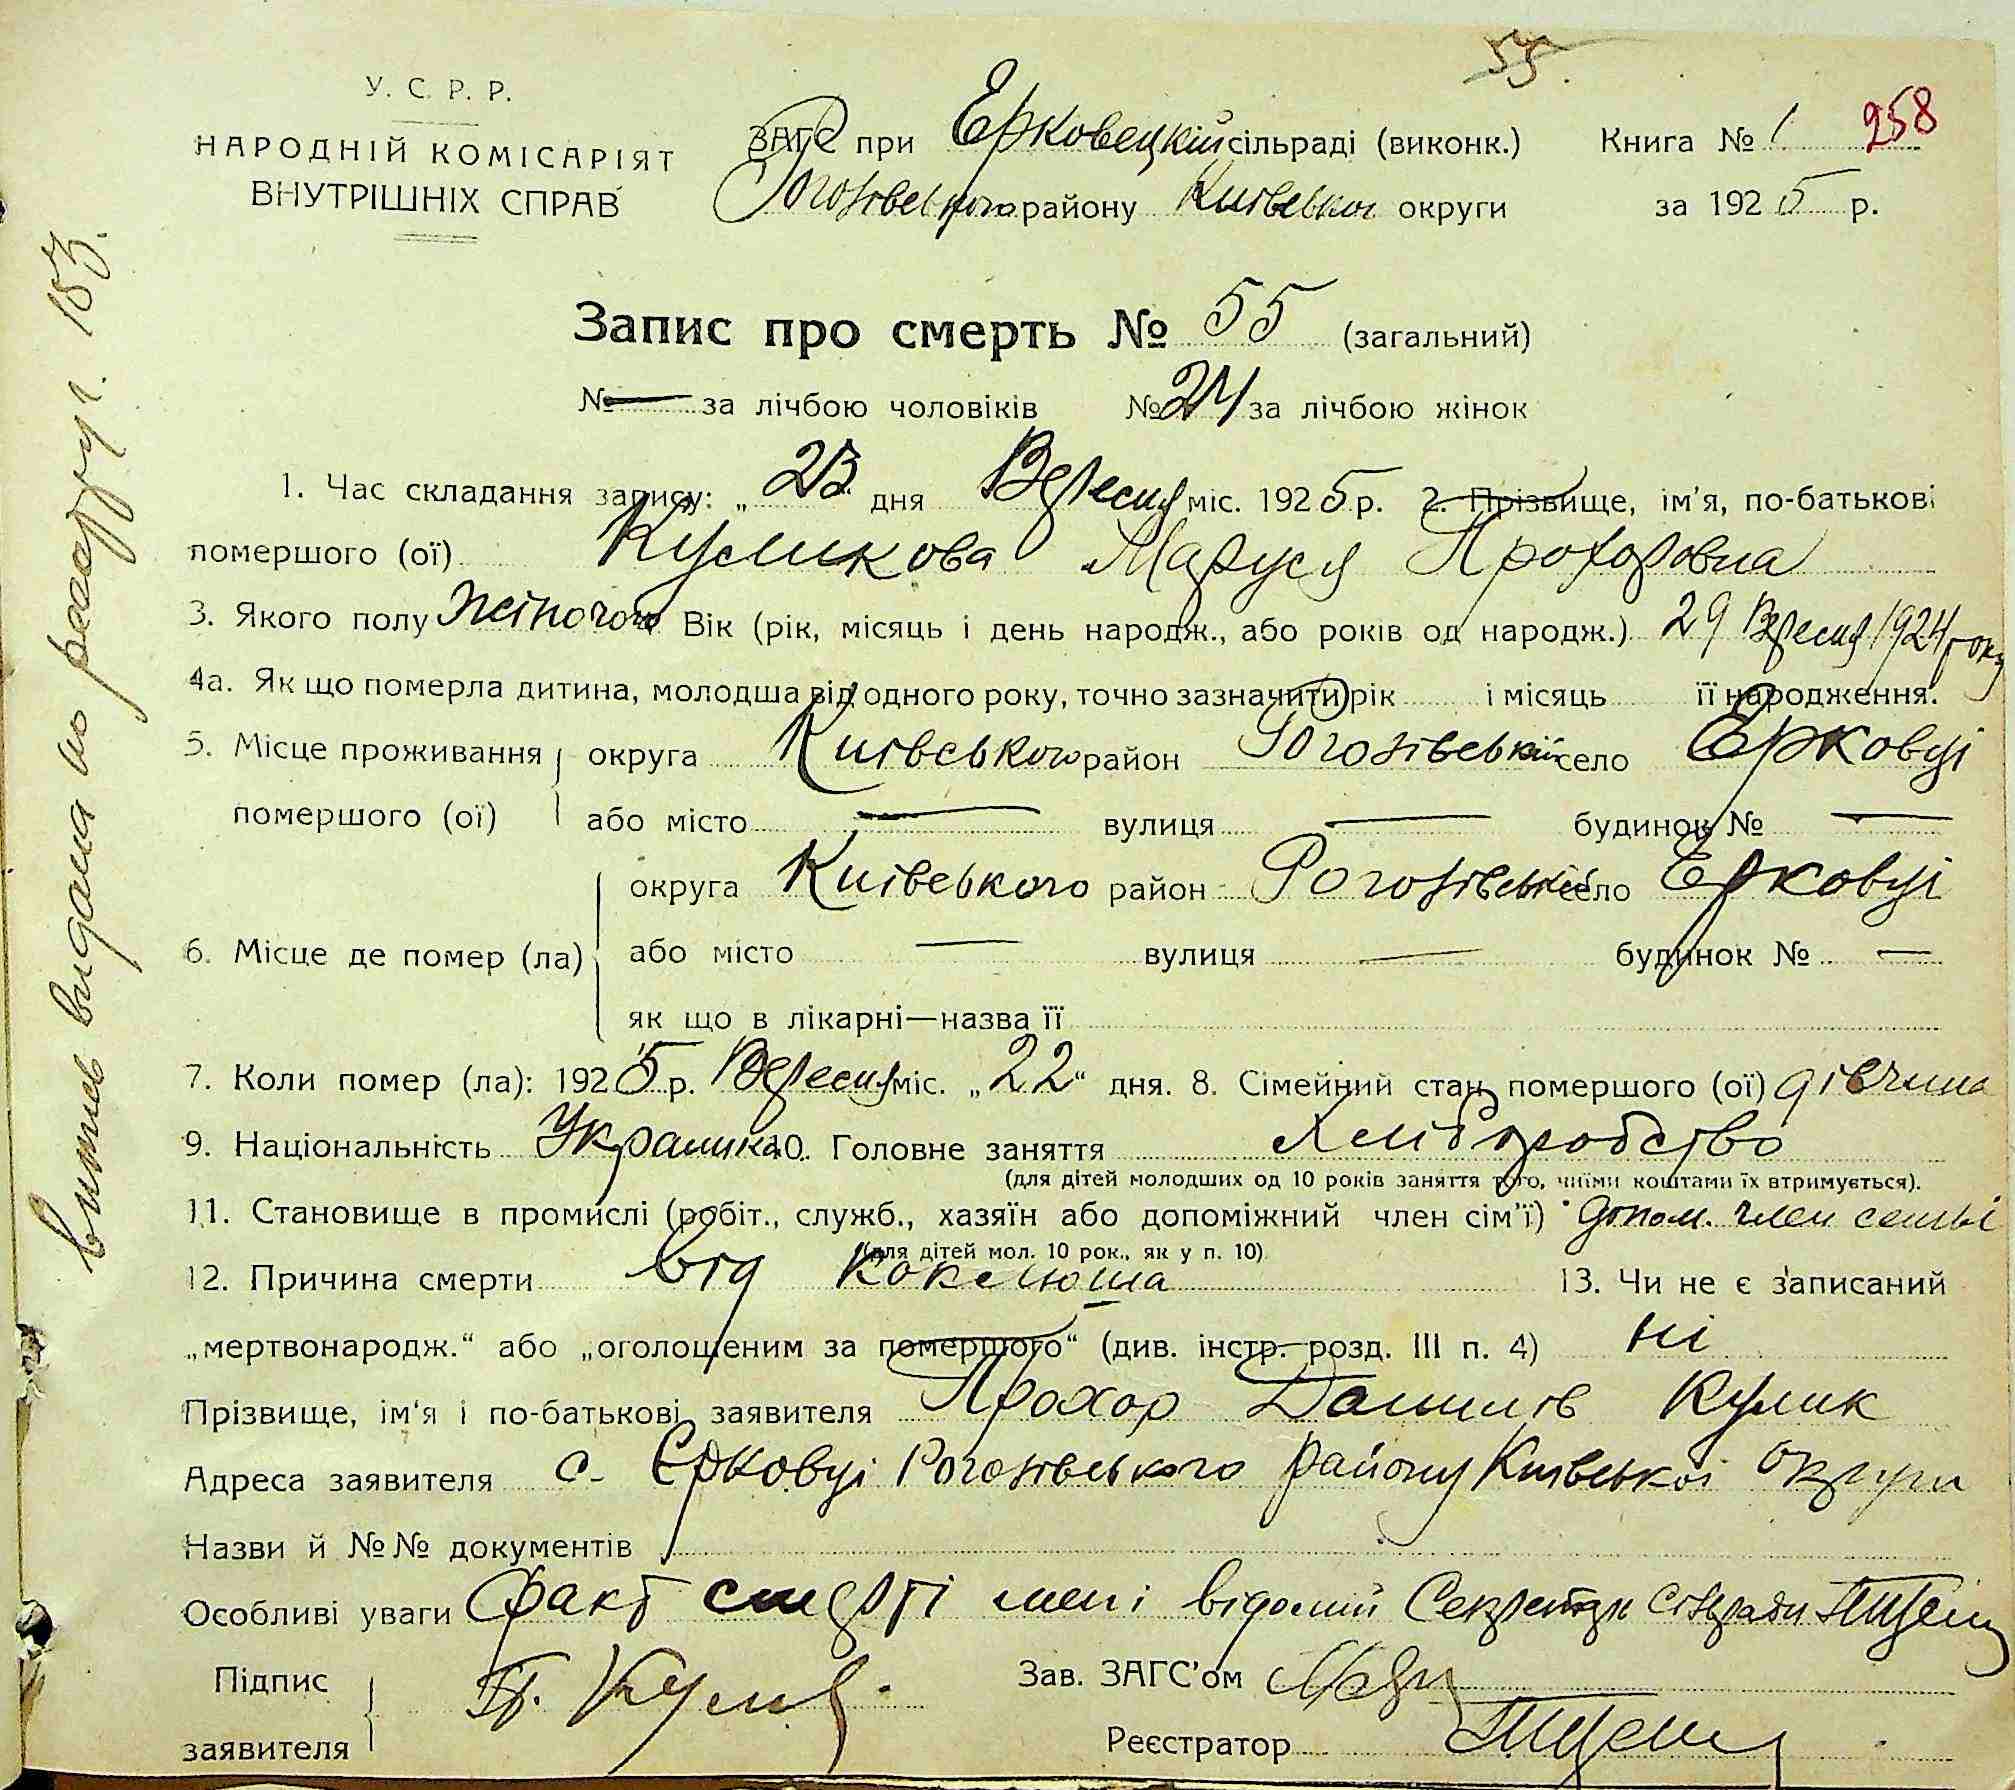 55.
У. С. Р. Р.
НАРОДНІЙ КОМІСАРІЯТ
ВНУТРІШНІХ СПРАВ
ЗАГС при Ерковецкій сільраді (виконк.) Книга № 1 258
Рогозівського району Київської округи за 1925 р.
Запис про смерть № 55 (загальний)
№ — за лічбою чоловіків № 24 за лічбою жінок
1. Час складання запису: „23“ дня Вересня міс. 1925 р. 2. Прізвище, ім'я, по-батькові
помершого (ої) Куликова Маруся Прохоровна
3. Якого полу жіночого Вік (рік, місяць і день народж., або років од народж.) 29 Вересня 1924 року
4а. Як що померла дитина, молодша від одного року, точно зазначити рік і місяць її народження.
5. Місце проживання округа Київського район Рогозівській село Ерковці
помершого (ої) або місто — вулиця — будинок № —
округа Київського район Рогозівській село Ерковці
6. Місце де помер (ла) або місто — вулиця — будинок № —
як що в лікарні—назва її
7. Коли помер (ла): 1925 р. Вересня міс. „22“ дня. 8. Сімейний стан помершого (ої) дівчина
9. Національність Українка 10. Головне заняття хліборобство
(для дітей молодших од 10 років заняття того, чиїми коштами їх втримується).
11. Становище в промислі (робіт., служб., хазяїн або допоміжний член сім'ї) допом. член семьі
(для дітей мол. 10 рок., як у п. 10)
12. Причина смерти від коклюша 13. Чи не є записаний
„мертвонародж.“ або „оголошеним за помершого“ (див. інстр. розд. III п. 4) ні
Прізвище, ім'я і по-батькові заявителя Прохор Данилів Кулик
Адреса заявителя с. Єрковці Рогозівського району Київської округи
Назви й №№ документів
Особливі уваги факт смерті мені відомий Секретарь сільради
Підпис
заявителя П. Кулик
Зав. ЗАГС'ом
Реєстратор
витяг видана по реєстру 153.